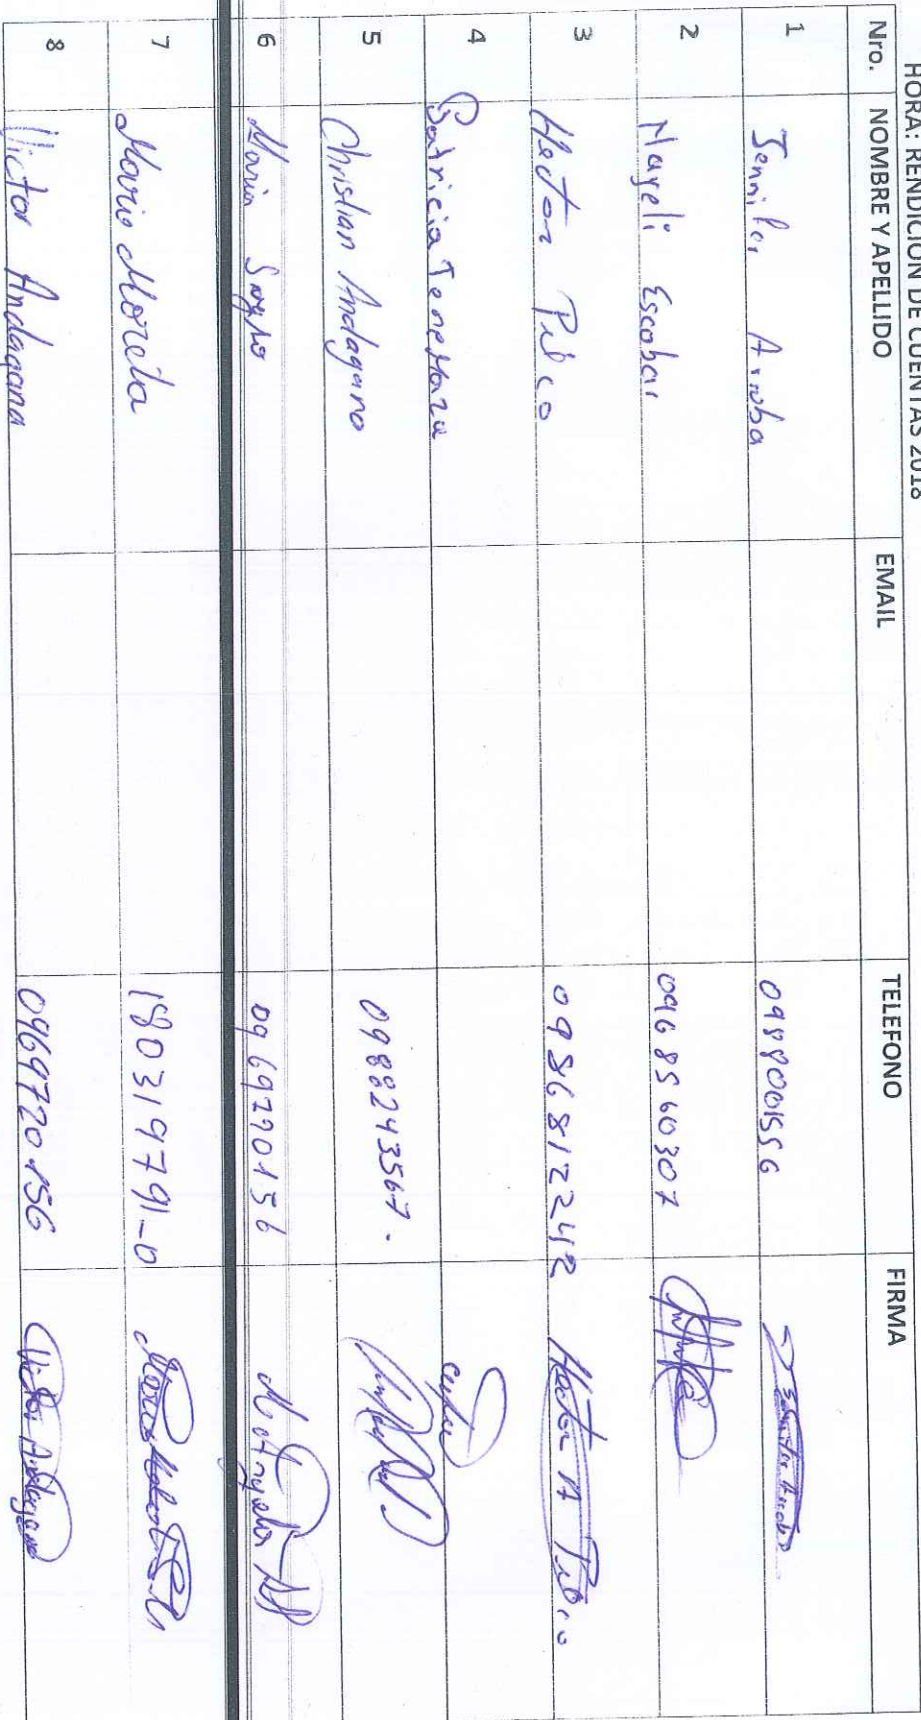 HORA: RENDICION DE CUENTAS 2018
Nro. NOMBRE Y APELLIDO EMAIL TELEFONO FIRMA
1 Jennifer Arroba 0988001556
2 Nayeli Escobar 0968560307
3 Hector Pilco 0986812242 Hector A Pilco
4 Patricia Tenemaza
5 Christian Andagana 0988243567.
6 Maria 0969720156
7 Mario Moreta 180319791-0
8 Victor Andagana 0969720156 Victor Andagana